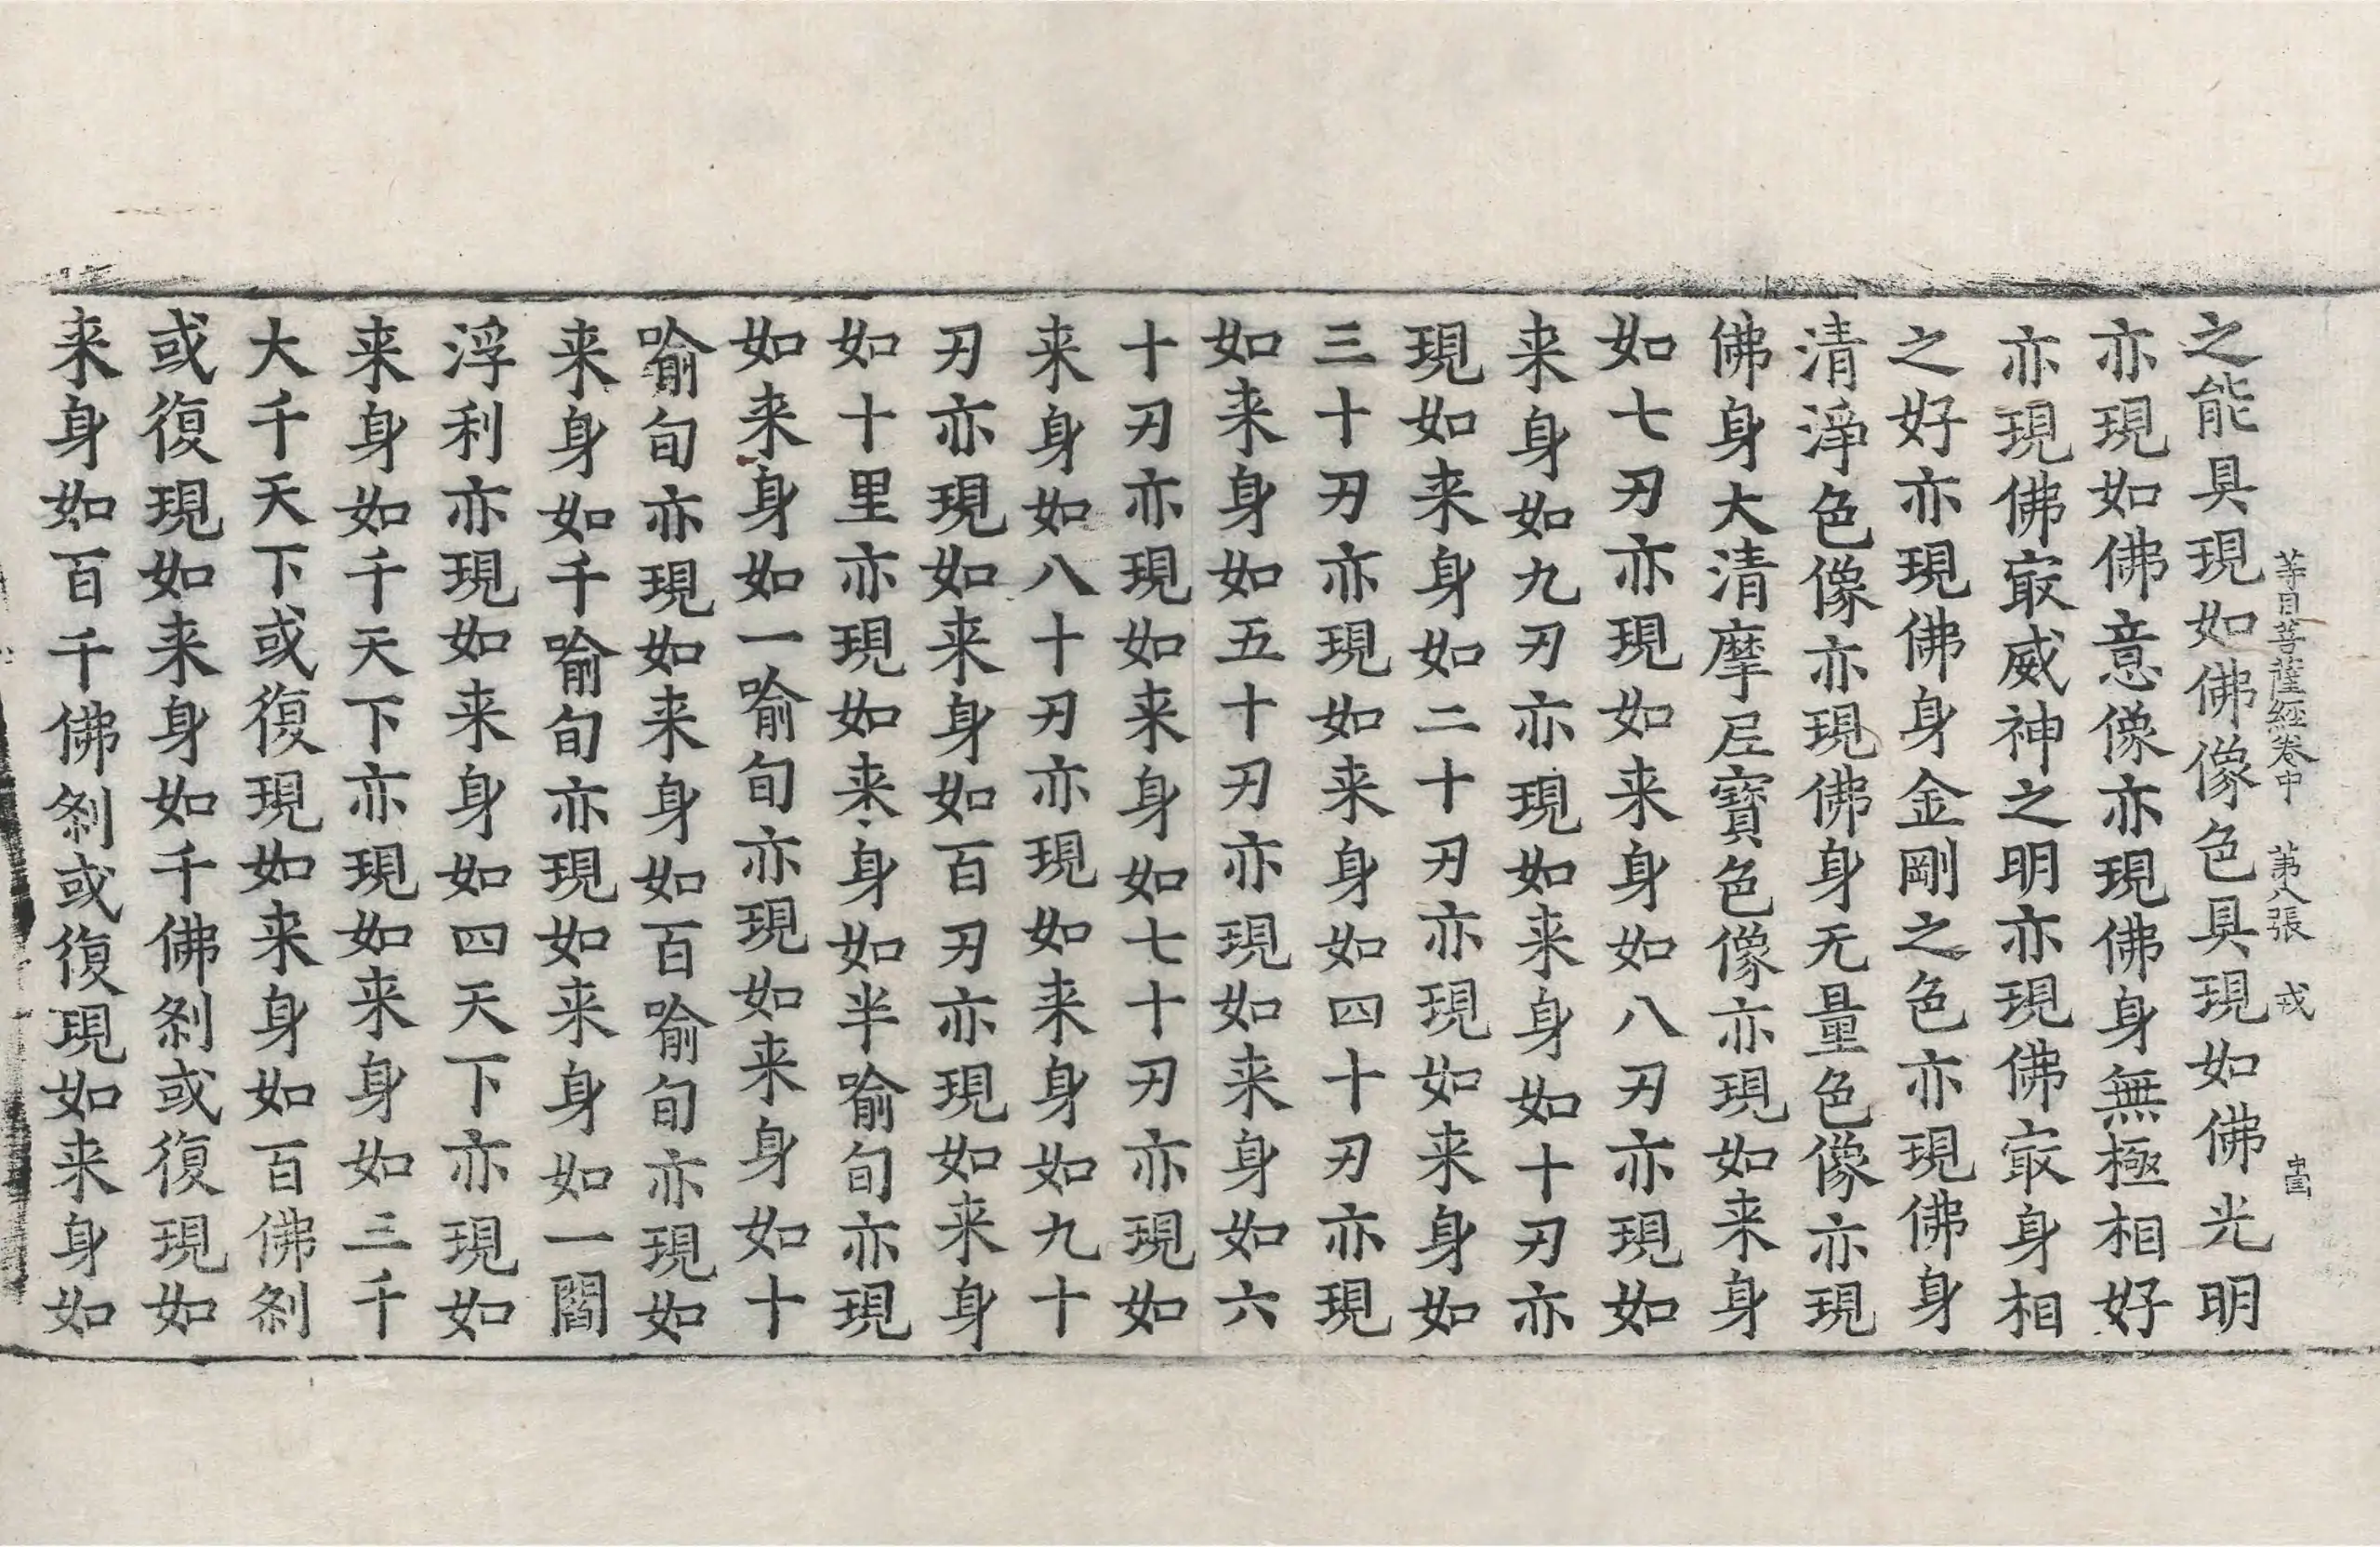 等目菩薩經卷中 第八張 戎
之能具現如佛像色具現如佛光明
亦現如佛意像亦現佛身無極相好
亦現佛㝡威神之明亦現佛㝡身相
之好亦現佛身金剛之色亦現佛身
清淨色像亦現佛身无量色像亦現
佛身大清摩尼寶色像亦現如来身
如七刃亦現如来身如八刃亦現如
来身如九刃亦現如来身如十刃亦
現如来身如二十刃亦現如来身如
三十刃亦現如来身如四十刃亦現
如来身如五十刃亦現如来身如六
十刃亦現如来身如七十刃亦現如
来身如八十刃亦現如来身如九十
刃亦現如来身如百刃亦現如来身
如十里亦現如来身如半喻旬亦現
如来身如一喻旬亦現如来身如十
喻旬亦現如来身如百喻旬亦現如
来身如千喻旬亦現如来身如一閻
浮利亦現如来身如四天下亦現如
来身如千天下亦現如来身如三千
大千天下或復現如来身如百佛刹
或復現如来身如千佛刹或復現如
来身如百千佛刹或復現如来身如